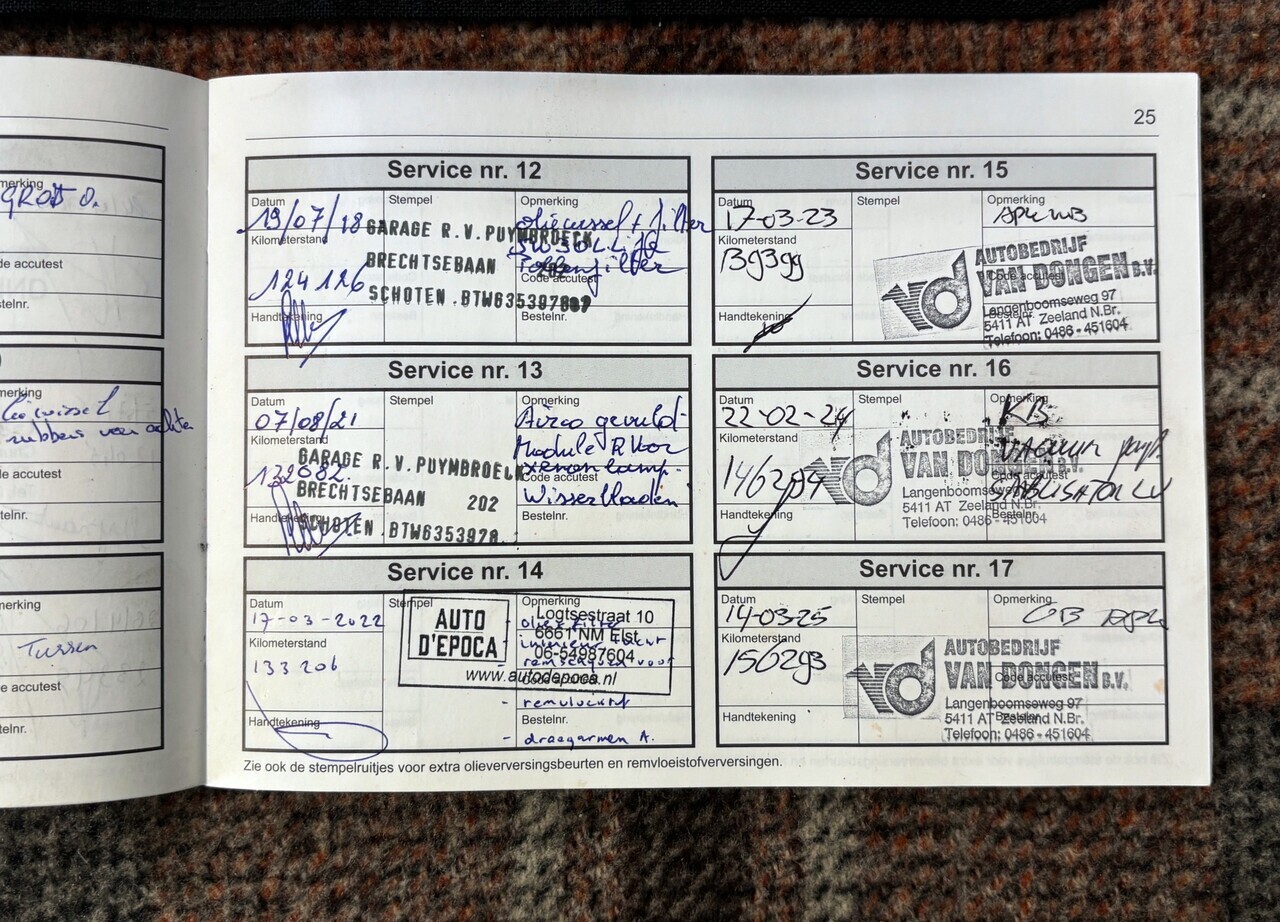 25
merking
GROTE O.
de accutest
elnr.
merking
de accutest
telnr.
merking
Tussen
de accutest
telnr.
Service nr. 12
Datum
19/07/18
Stempel
Opmerking
oliewissel + filter
5W30LL
Pollenfilter
Kilometerstand
124 126
GARAGE R.V. PUYMBROECK
BRECHTSEBAAN 202
SCHOTEN .BTW635397807
Code accutest
Handtekening
Bestelnr.
Service nr. 13
Datum
07/08/21
Stempel
Opmerking
Airco gevuld
Module R Vor
xenon lamp.
Wisserbladen
Kilometerstand
132082.
GARAGE R.V. PUYMBROECK
BRECHTSEBAAN 202
SCHOTEN .BTW6353978.
Code accutest
Handtekening
Bestelnr.
Service nr. 14
Datum
17-03-2022
Stempel
Opmerking
Kilometerstand
133206
AUTO
D'EPOCA
Logtsestraat 10
6661 NM Elst
06-54987604
www.autodepoca.nl
- remschijven voor
Code accutest
- remvloeistof
Handtekening
Bestelnr.
- draagarmen A.
Service nr. 15
Datum
17-03-23
Stempel
Opmerking
Kilometerstand
139399
AUTOBEDRIJF
VAN DONGEN B.V.
Langenboomseweg 97
5411 AT Zeeland N.Br.
Telefoon: 0486 - 451604
Code accutest
Handtekening
Bestelnr.
Service nr. 16
Datum
22-02-24
Stempel
Opmerking
KB
Vacuum
Kilometerstand
146294
AUTOBEDRIJF
VAN DONGEN B.V.
Langenboomseweg
5411 AT Zeeland N.Br.
Telefoon: 0486 - 451604
Code accutest
Handtekening
Bestelnr.
Service nr. 17
Datum
14-03-25
Stempel
Opmerking
Kilometerstand
156293
AUTOBEDRIJF
VAN DONGEN B.V.
Langenboomseweg 97
5411 AT Zeeland N.Br.
Telefoon: 0486 - 451604
Code accutest
Handtekening
Bestelnr.
Zie ook de stempelruitjes voor extra olieverversingsbeurten en remvloeistofverversingen.